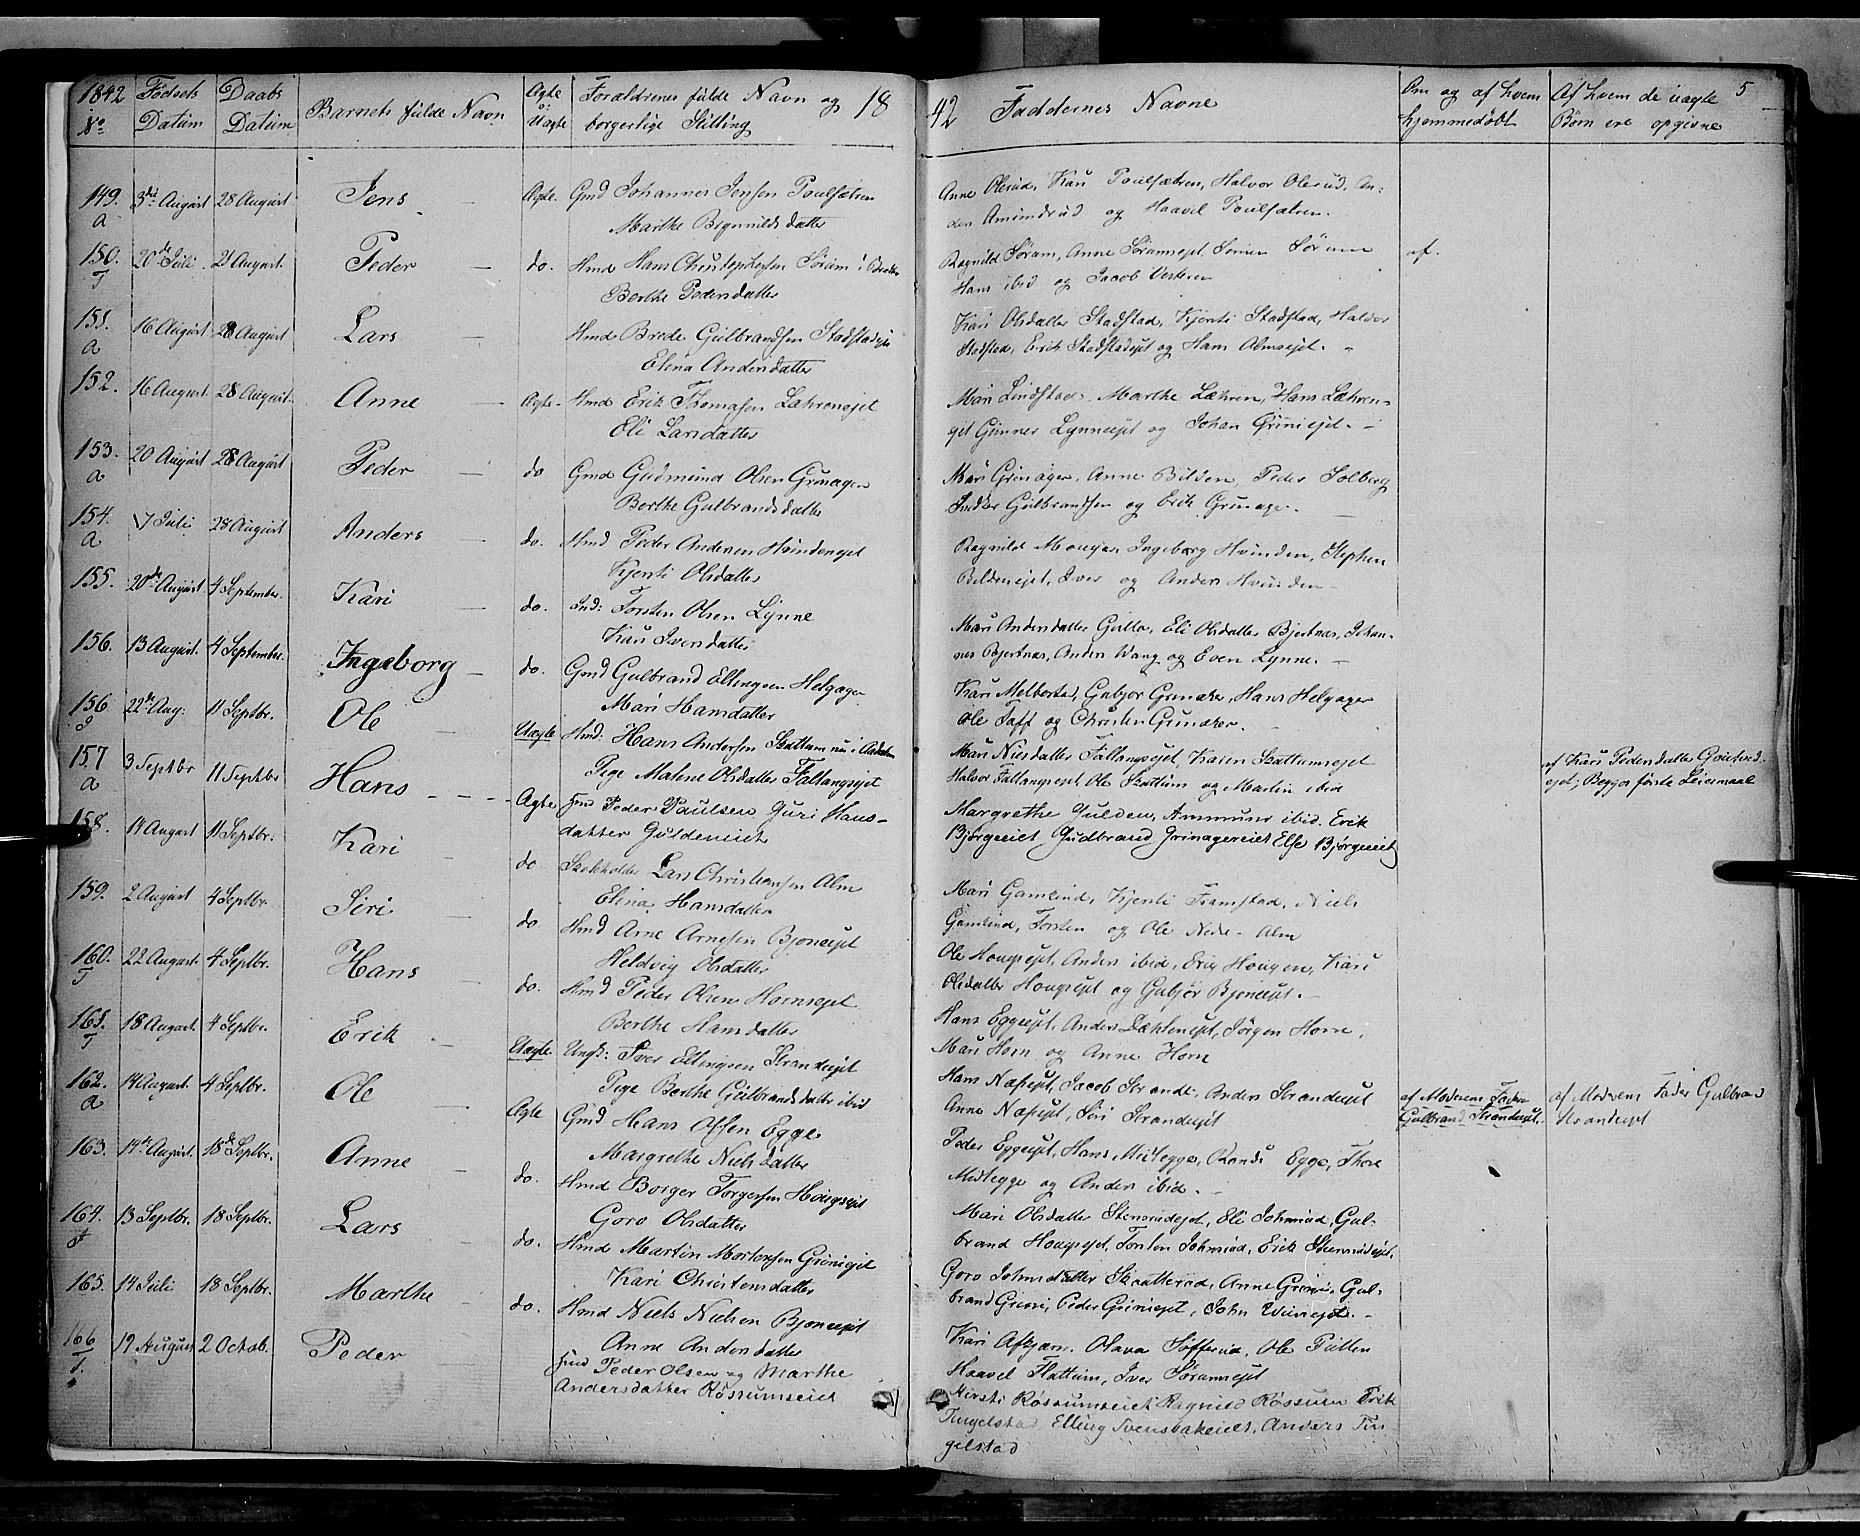 1842 Fødsels Daabs Barnets fulde Navn Ægte Forældrenes fulde Navn og 18
No Datum Datum o: Uægte borgerlige Stilling
42 Faddernes Navne Om og af hvem Af hvem de uægte 5
hjemmedøbt Børn ere opgivne
149. 3die August 28 August Jens Ægte. Gmd Johannes Jensen Poulsætren
a Marthe Brynnildsdatter
Anne Olerud, Kari Poulsætren, Halvor Olerud, An-
ders Amundrud og Haavel Poulsætren.
150. 20de Juli 21 August. Peder do. Hmd Hans Christophersen Sørum i
T Berthe Pedersdatter
Ragnild Sørum, Anne Sørumsejet, Simen Sørum af.
Hans ibid og Jacob Vesteren
151. 16 August 28 August Lars Hmd Brede Gulbrandsen Stadstadejet
a Elina Andersdatter
Kari Olsdatter Stadstad, Kjersti Stadstad, Halvor
Stadstad, Erik Stadstadejet og Hans Almsejet.
152. 16 August 28 August. Anne Ægte Hmd Erik Thomasen Læhrenejet
Eli Larsdatter
Mari Lindstad, Marthe Læhren, Hans Læhren-
ejet Gunner Lynneejet og Johan Griniejet.
153. 20 August 28 August Peder do Gmd Gudmund Olsen Grinager
a Berthe Gulbrandsdatter
Mari Grinager, Anne Bilden, Peder Solberg
Gulbrandsen og Erik Grinager.
154. 7 Juli 28 August Anders do. Hmd Peder Andersen Hvindenejet
a Kjersti Olsdatter
Ragnild Ingeborg Hvinden, Stephen
Bildenejet, Iver og Anders Hvinden
155. 20de August 4 September. Kari do. Ind: Torsten Olsen Lynne
Kari Iversdatter
Mari Andersdatter Gulla, Eli Olsdatter Bjertnæs, Johan-
nes Bjertnæs, Anders Wang og Even Lynne.
156. 13 August. 4 September. Ingeborg do. Gmd Gulbrand Ellingsen Helgager
Mari Hansdatter
Kari Melbostad, Gubjør Grinaker, Hans Helgager
Ole Toff og Christen Grinaker.
156 22de Aug: 11 Septbr. Ole Uægte Hmd: Hans Andersen Skattum nu i
Pige Malene Olsdatter Faltangsejet
Mari Nilsdatter Faltangsejet, Karen Skattumsejet
Halvor Faltangsejet Ole Skattum og Martin ibid
af Kari Pedersdatter
ejet; Begges første Leiermaal
157 3 Septbr 11 Septbr Hans Ægte Hmd Peder Paulsen Guri Hans-
a datter Guldeneiet
Margrethe Gulden, Ammund ibid. Erik
Bjørgeeiet Gudbrand Grinagereiet Else Bjørgeeiet
158. 14 August 11 Septbr. Kari do Skoleholder Lars Christiansen Alm
Elina Hansdatter
Mari Gamlind, Kjersti Framstad, Niels
Gamlind, Torsten og Ole Nedr. Alm
159. 2 August 4 Septbr. Siri do Hmd Arne Arnesen Bjoneejet
Heldvig Olsdatter
Ole Hougsejet, Anders ibid, Erig Hougen, Kari
Olsdatter Hougsejet og Gubjør Bjoneejet.
160. 22 August. 4 Septbr. Hans do. Hmd Peder Olsen Hornsejet
T Berthe Hansdatter
Hans Eggeejet, Anders Dæhlenejet, Jørgen Horn,
Mari Horn og Anne Horn
161. 18 August. 4 Septbr. Erik Uægte Ungk: Iver Ellingsen Strandeejet
T Pige Berthe Gulbrandsdatter ibid
Hans Næsejet, Jacob Strande, Anders Strandeejet
Anne Næsejet, Siri Strandeejet
af Moderens Fader af Moderens Fader Gulbrand
Gulbrand Strandeejet. Strandeejet
162. 14 August. 4 Septbr. Ole Ægte Gmd Hans Olsen Egge
a Margrethe Nielsdatter
Peder Eggeejet, Hans Mitegge, Randi Egge, Thore
Mitegge og Anders ibid.
163. 14de August. 18de Septbr. Anne do. Hmd Borger Torgersen Hougsejet
Goro Olsdatter
Mari Olsdatter Stensrudejet, Eli Johnsrud, Gul-
brand Hougsejet, Torsten Johnsrud, Erik Stensrudejet.
164. 13 Septbr. 18 Septbr. Lars do. Hmd Martin Mortensen Griniejet
Kari Christensdatter
Goro Johnsdatter Skatterud, Anne Grini, Gul-
brand Grini, Peder Griniejet, John
165. 14 Juli 18 Septbr. Marthe do. Hmd Niels Nielsen Bjoneejet
Anne Andersdatter
Kari Afkjærn, Olava Sofferud, Ole Putten
Haavel Flattum, Iver Sørumsejet
166 17 August 2 Octob. Peder Hmd Peder Olsen og Marthe
1. Andersdatter Røssumseiet
Kirsti Røssumseiet Ragnild Røssum Erik
Tingelstad Elling Svensbakeiet, Anders Tin-
gelstad